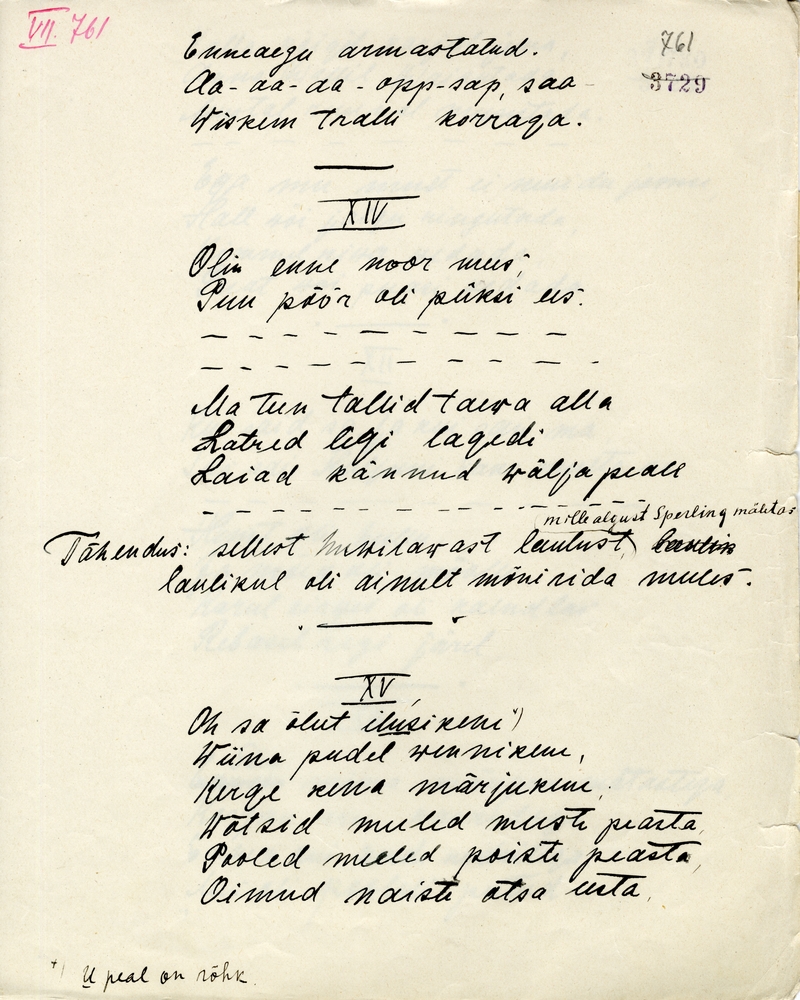 VII. 761
761
3729
Enneaegu armastatud.
Aa-aa-aa-opp-sap, saa-
Wiskem tralli korraga.
XIV
Olin enne noor mees,
Puu pöör oli püksi ees.
Ma teen tallid taewa alla
Latred ligi lagedi
Laiad kännud wälja peale
mille algust Sperling mäletas
Tähendus: sellest huwitawast laulust,
laulikul oli ainult mõni rida meeles.
XV
Oh sa õlut ilusikene *)
Wiina pudel wennikene,
Kerge kena märjukene,
Wõtsid meeled meeste peasta,
Pooled meeled poiste peasta,
Oimud naiste otsa eesta,
*) U peal on rõhk.